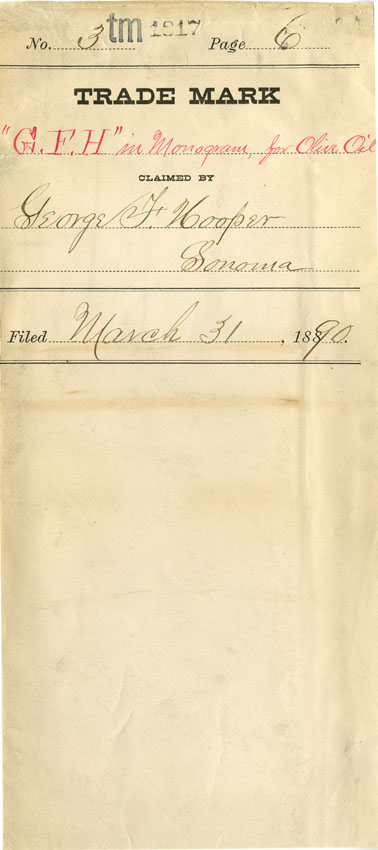 No. 3 tm 1817 Page 6
TRADE MARK
"G.F.H" in Monogram, for Olive Oil
CLAIMED BY
George F. Hooper
Sonoma
Filed March 31, 18890.